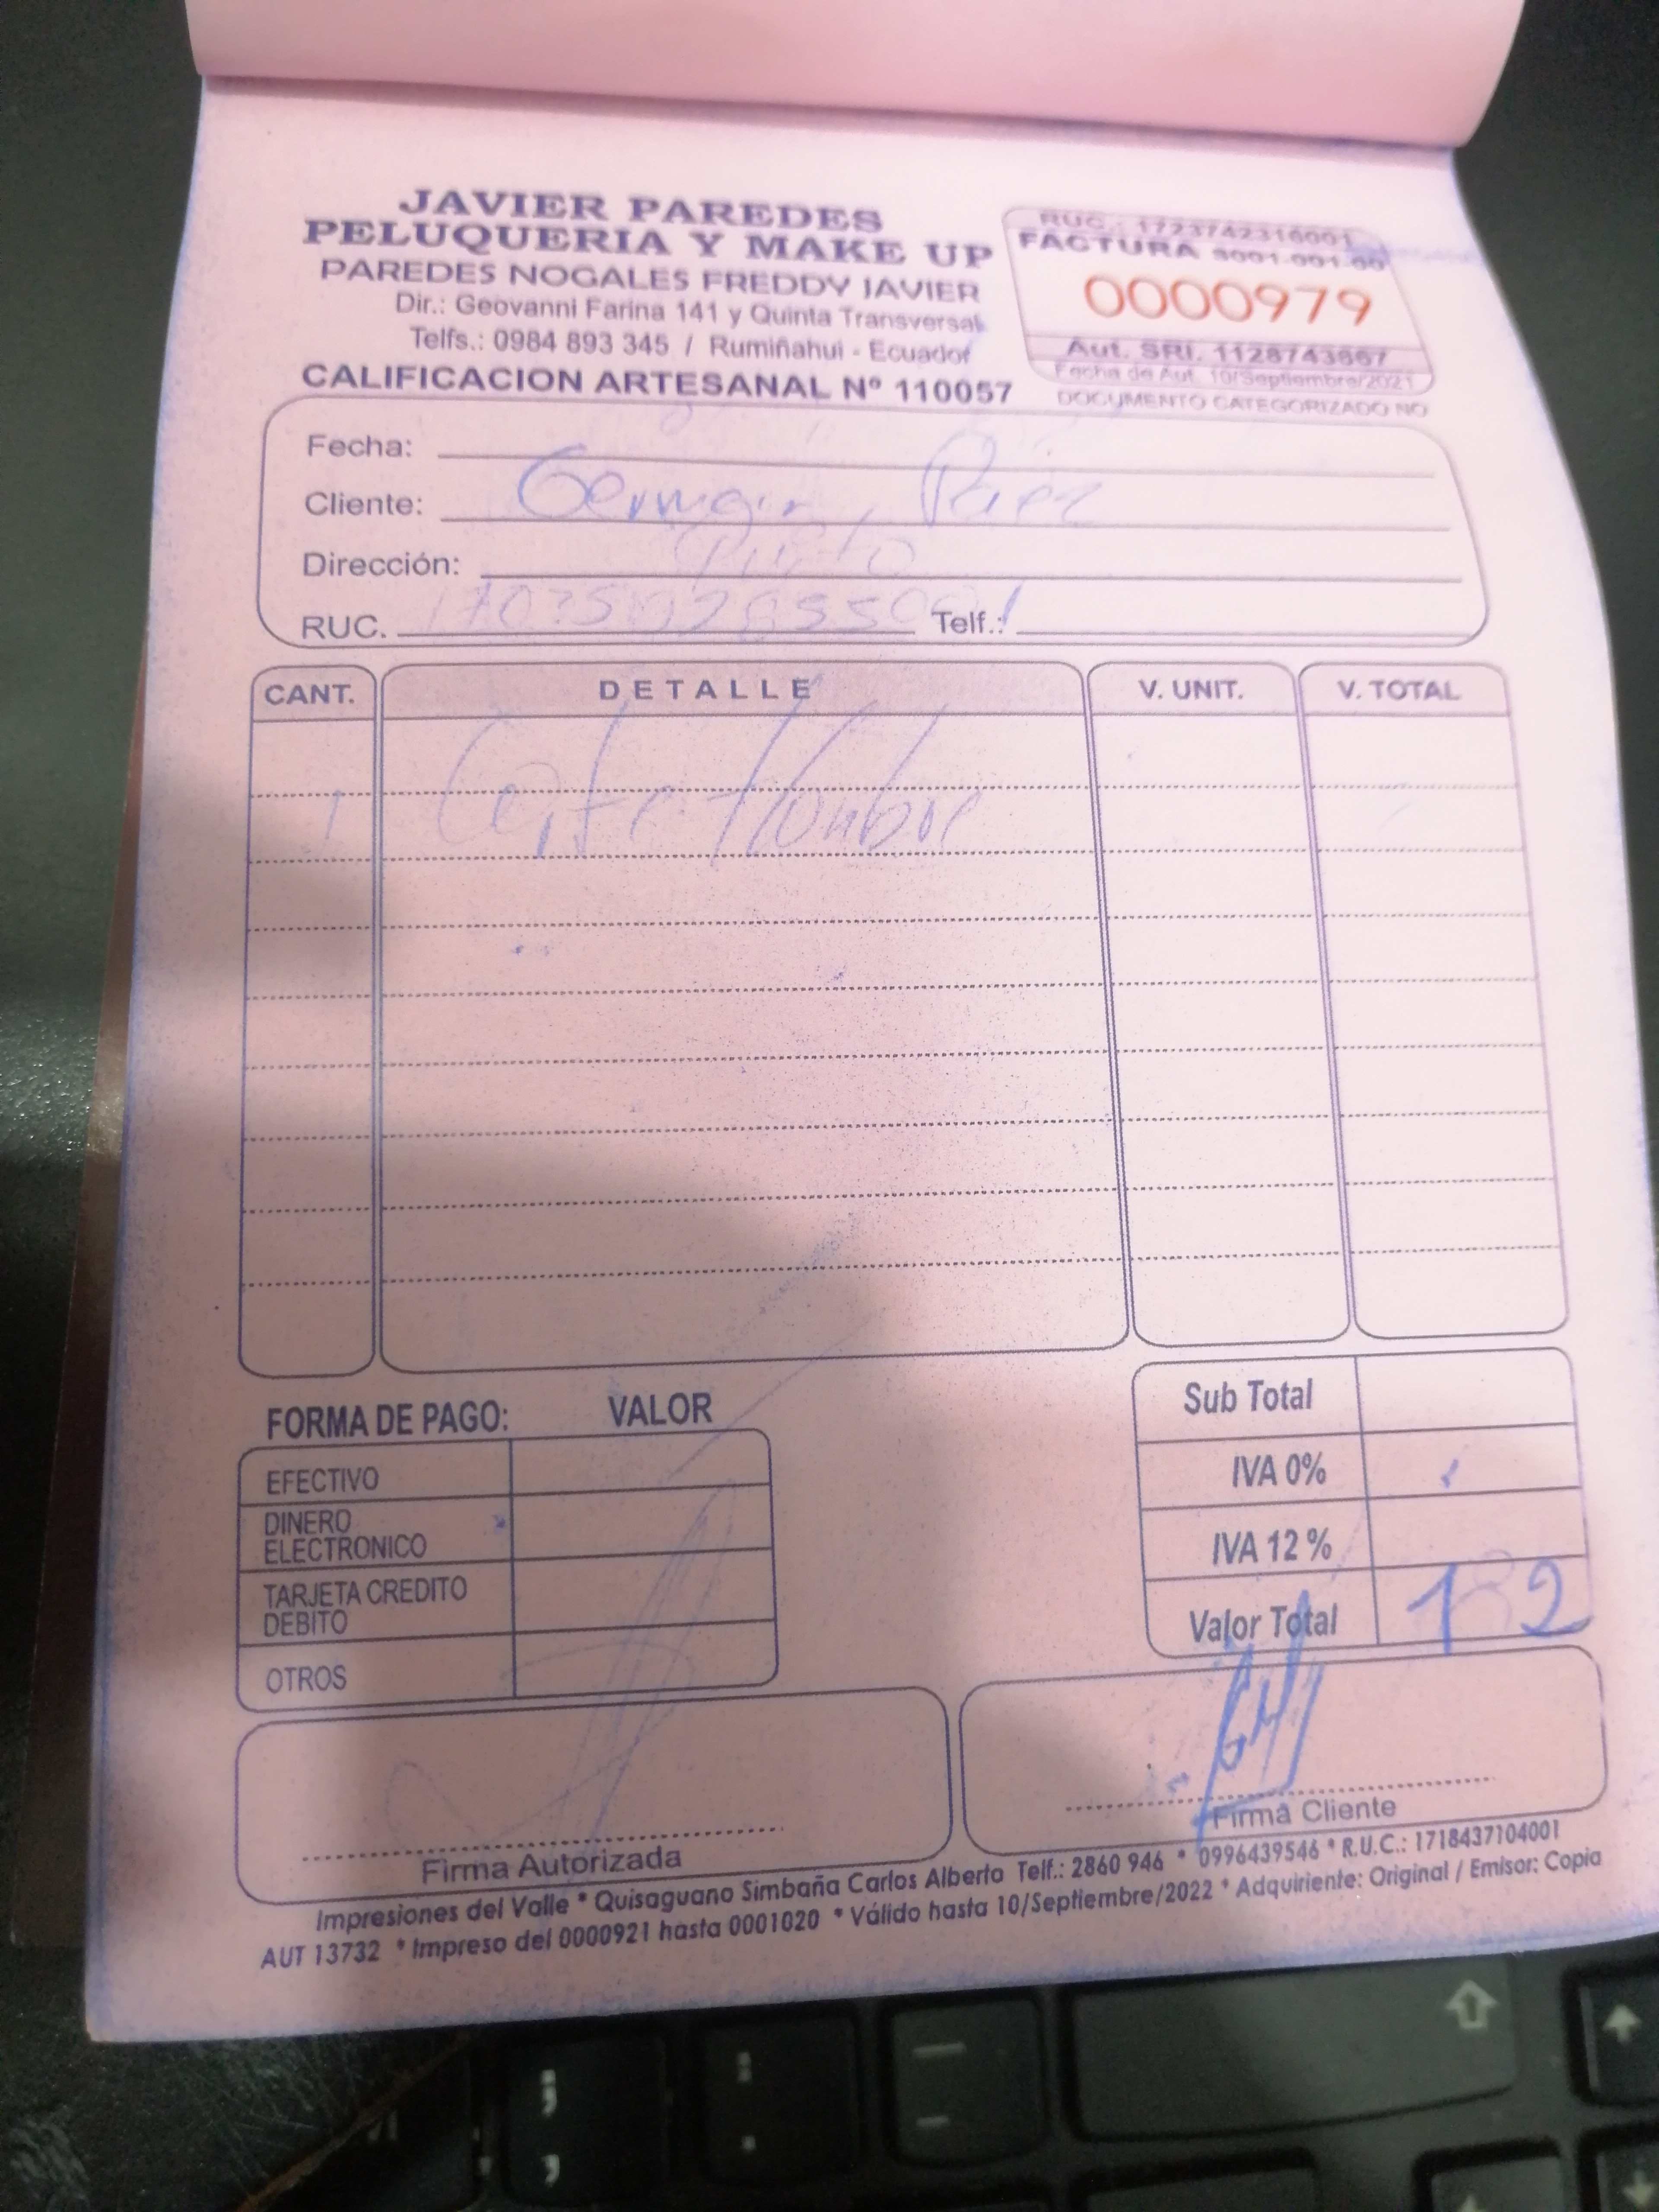 JAVIER PAREDES
PELUQUERIA Y MAKE UP
PAREDES NOGALES FREDDY JAVIER
Dir.: Geovanni Farina 141 y Quinta Transversal
Telfs.: 0984 893 345 / Rumiñahui - Ecuador
CALIFICACION ARTESANAL Nº 110057
RUC.: 1723742316001
FACTURA S001-001-00
0000979
Aut. SRI. 1128743867
Fecha de Aut. 10/Septiembre/2021
DOCUMENTO CATEGORIZADO NO
Fecha:
Cliente: German Páez
Dirección: Quito
RUC. Telf.:
CANT. DETALLE V. UNIT. V. TOTAL
1 Corte Hombre
FORMA DE PAGO: VALOR
EFECTIVO
DINERO
ELECTRONICO
TARJETA CREDITO
DEBITO
OTROS
Sub Total
IVA 0%
IVA 12 %
Valor Total
Firma Autorizada
Firma Cliente
Impresiones del Valle * Quisaguano Simbaña Carlos Alberto Telf.: 2860 946 * 0996439546 * R.U.C.: 1718437104001
AUT 13732 * Impreso del 0000921 hasta 0001020 * Válido hasta 10/Septiembre/2022 * Adquiriente: Original / Emisor: Copia